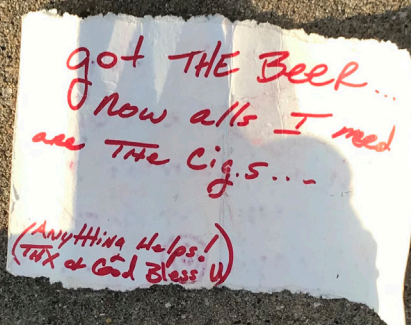 got THE BeeR...
Now alls I need
are THe Cigs...
(ANythiNg Helps!
THX & God Bless U)